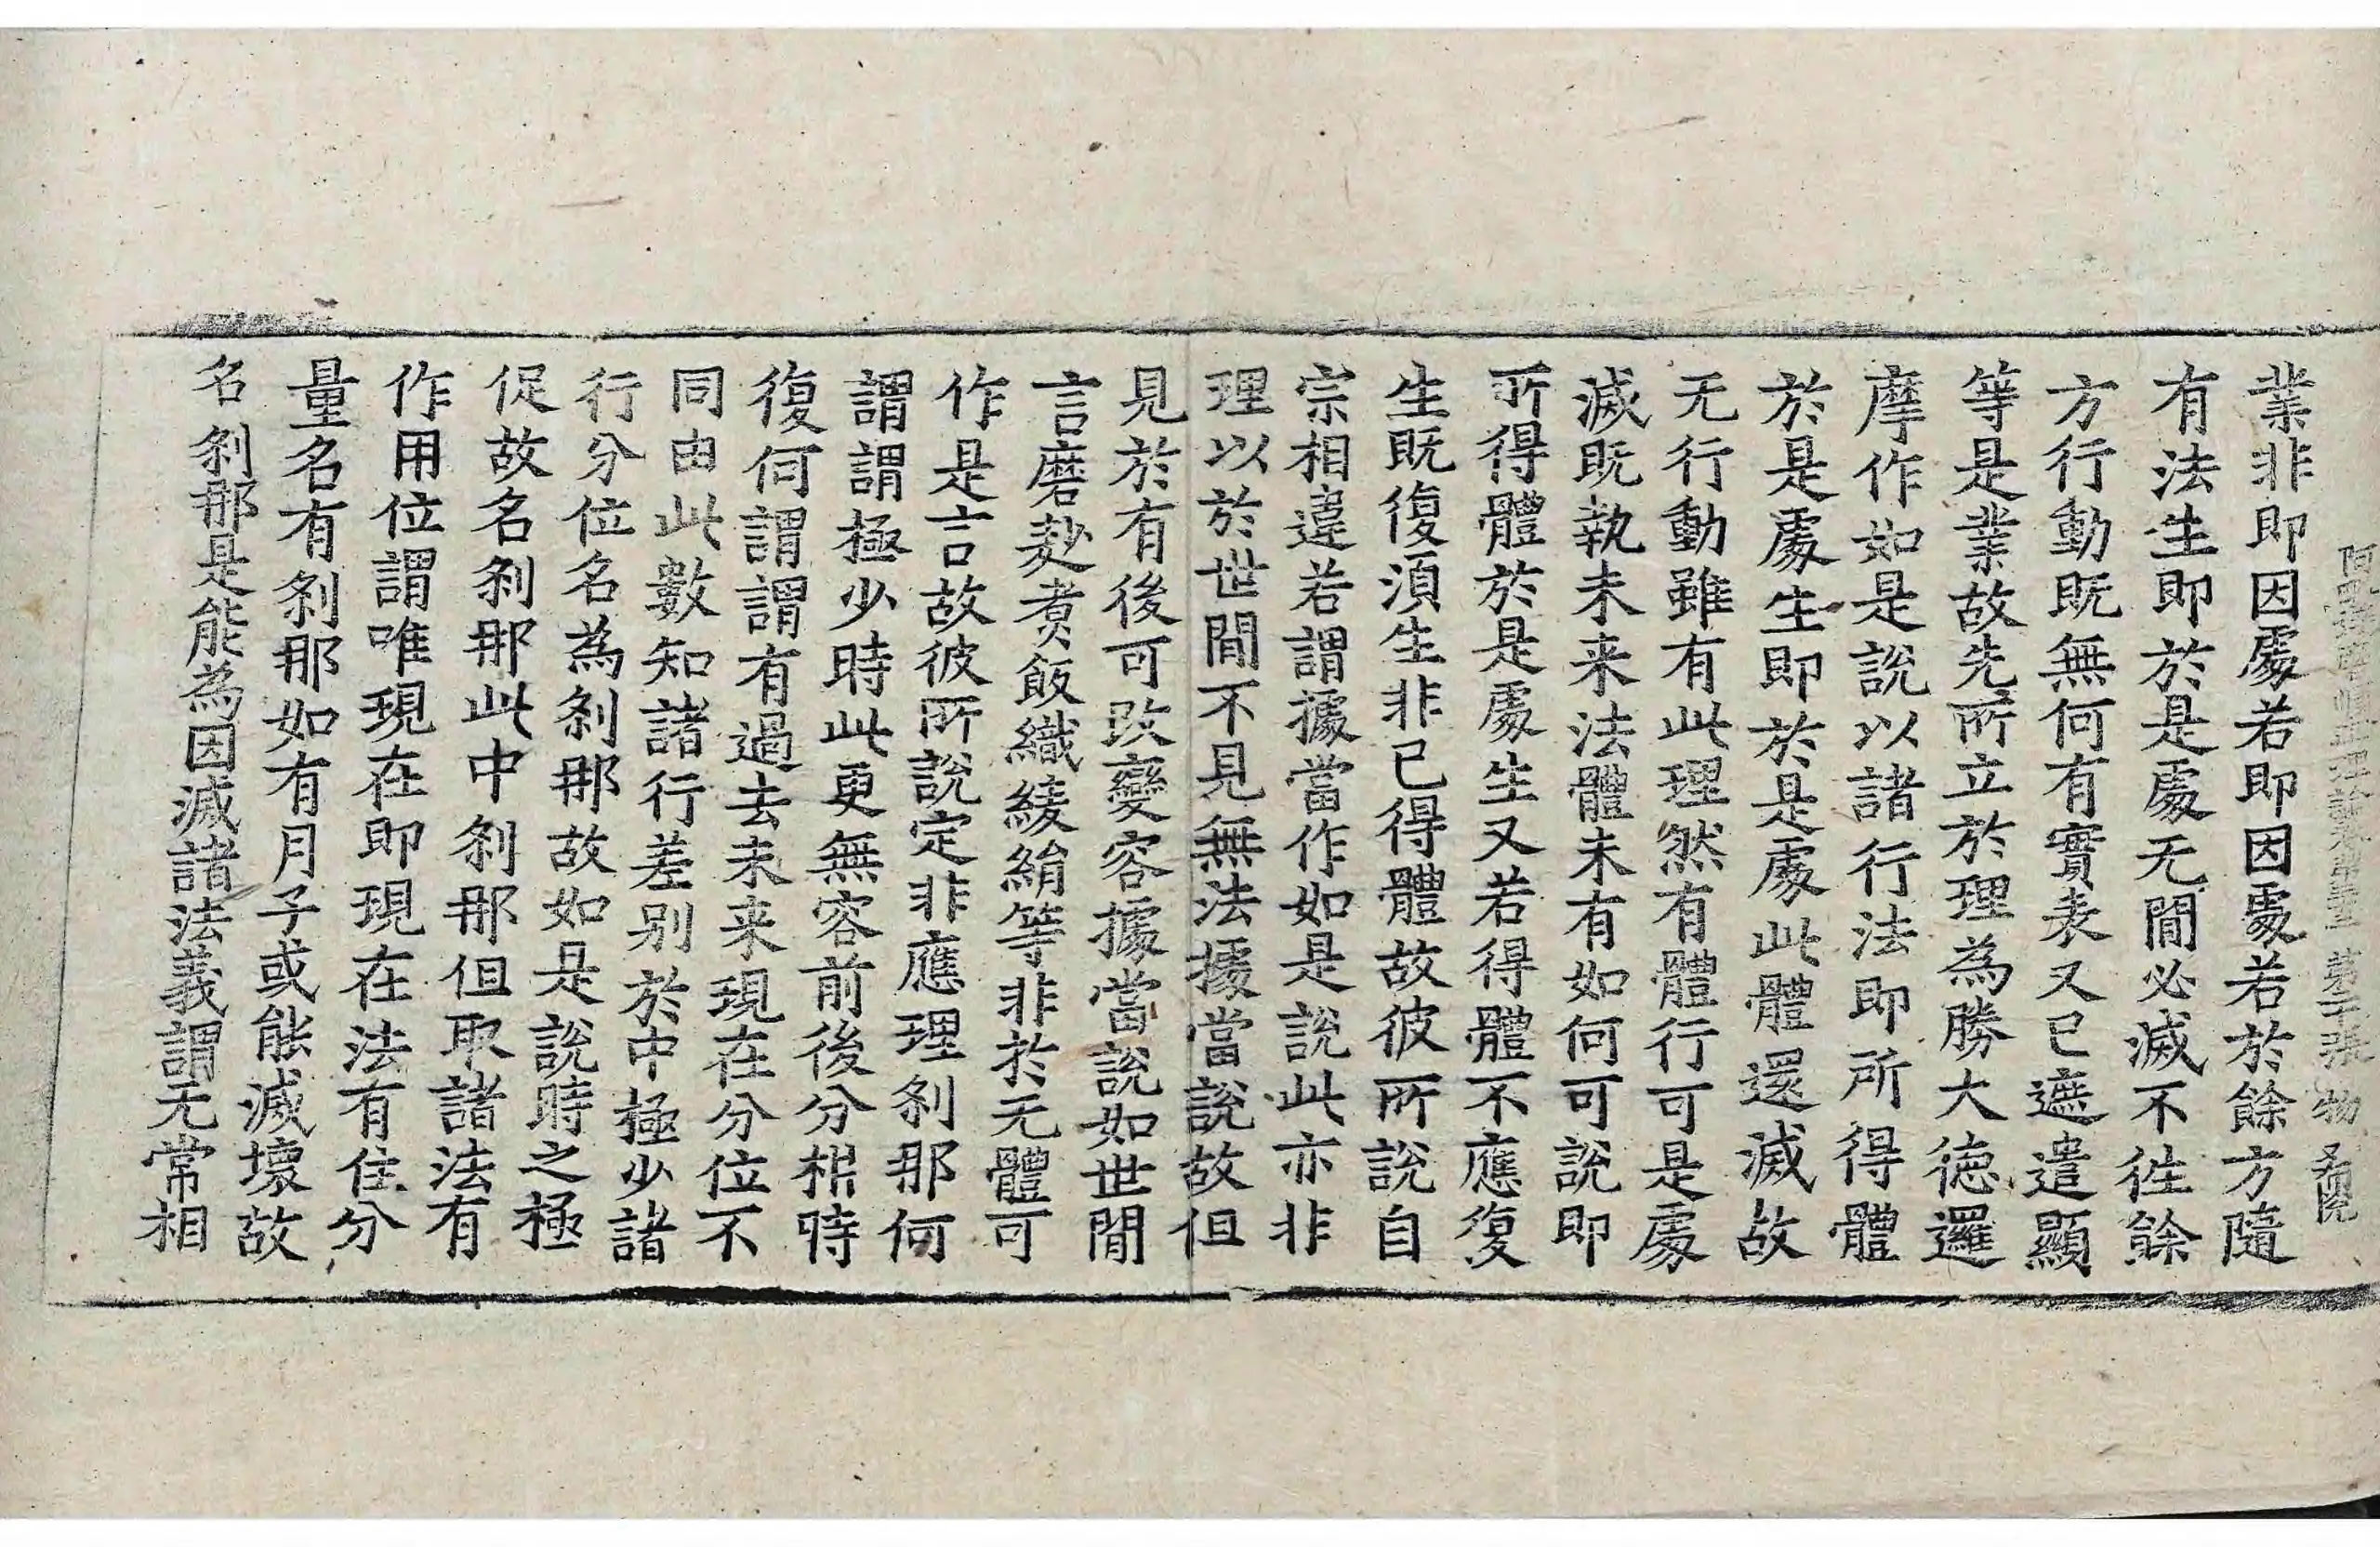 阿毗達磨順正理論卷第三十三 第二張 物
業非即因處若即因處若於餘方隨
有法生即於是處无間必滅不往餘
方行動既無何有實表又已遮遣顯
等是業故先所立於理為勝大德邏
摩作如是說以諸行法即所得體
於是處生即於是處此體還滅故
无行動雖有此理然有體行可是處
滅既執未来法體未有如何可說即
所得體於是處生又若得體不應復
生既復湏生非已得體故彼所說自
宗相違若謂據當作如是說此亦非
理以於世間不見無法據當說故但
見於有後可改變容據當說如世間
言磨麨煮飯織綾絹等非於无體可
作是言故彼所說定非應理剎那何
謂謂極少時此更無容前後分析時
復何謂謂有過去未来現在分位不
同由此數知諸行差别於中極少諸
行分位名為剎那故如是說時之極
促故名剎那此中剎那但取諸法有
作用位謂唯現在即現在法有住分
量名有剎那如有月子或能滅壞故
名剎那是能為因滅諸法義謂无常相